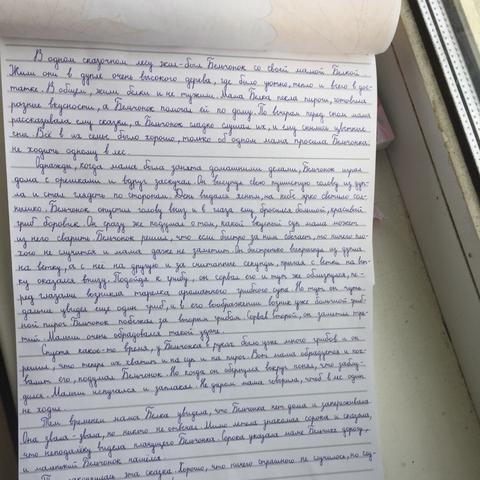 В одном сказочном лесу жил-был Бельчонок со своей мамой Белкой.
Жили они в дупле очень высокого дерева, где было уютно, тепло и всего в дос-
татке. В общем, жили белки и не тужили. Мама Белка пекла пироги, готовила
разные вкусности, а Бельчонок помогал ей по дому. По вечерам перед сном мама
рассказывала ему сказки, а Бельчонок сладко слушал их, и ему снились цветные
сны. Всё в их семье было хорошо, только об одном мама просила Бельчонка:
не ходить одному в лес.
Однажды, когда мама была занята домашними делами, Бельчонок играл
дома с орешками и вдруг заскучал. Он высунул свою пушистую голову из дуп-
ла и стал глядеть по сторонам. День выдался ясным, на небе ярко светило сол-
нышко. Бельчонок опустил голову вниз и в глаза ему бросился большой, красивый
гриб боровик. Он сразу же подумал о том, какой вкусный суп мама может
из него сварить. Бельчонок решил, что если быстро за ним сбегает, то ничего пло-
хого не случится и мама даже не заметит. Он быстренько выпрыгнул из дупла
на ветку, а с неё на другую и за считанные секунды, прыгая с ветки на вет-
ку оказался внизу. Подойдя к грибу, он сорвал его и тут же облизнулся, пе-
ред глазами возникла тарелка ароматного грибного супа. Но тут, он чуть
дальше увидел ещё один гриб, и в его воображении возник уже большой гриб-
ной пирог. Бельчонок побежал за вторым грибом. Сорвав второй, он заметил тре-
тий. Малыш очень обрадовался такой удаче.
Спустя какое-то время, у Бельчонка в руках было уже много грибов и он
решил, что теперь их хватит и на суп и на пирог. Вот мама обрадуется и пох-
валит его, подумал Бельчонок. Но когда он обернулся вокруг понял, что заблу-
дился. Малыш испугался и заплакал. Не даром мама говорила, чтоб в лес один
не ходил.
Тем временем мама Белка увидела, что Бельчонка нет дома и запереживала.
Она звала-звала, но никто не отвечал. Мимо летела знакомая сорока и сказала,
что неподалёку видела плачущего Бельчонка. Сорока указала маме Белке дорогу,
и маленький Бельчонок нашёлся.
сказка. Хорошо, что ничего страшного не случилось, но